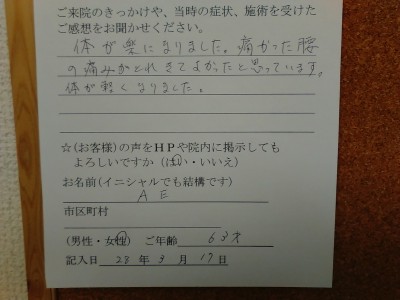 ご来院のきっかけや、当時の症状、施術を受けた
ご感想をお聞かせください。
体が楽になりました。痛かった腰
の痛みがとれきてよかったと思っています。
体が軽くなりました。
☆(お客様)の声をHPや院内に掲示しても
よろしいですか（はい・いいえ）
お名前(イニシャルでも結構です)
A E
市区町村
(男性・女性) ご年齢 63才
記入日 28 年 3 月 17 日